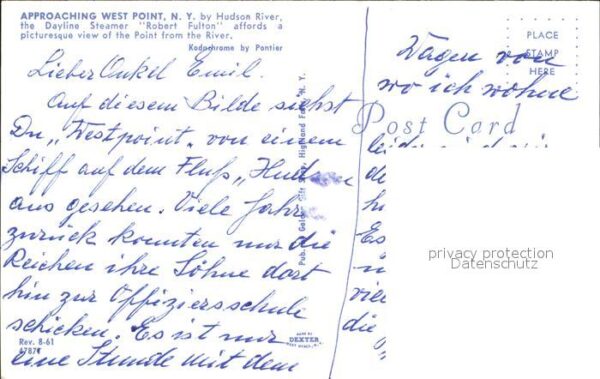 APPROACHING WEST POINT, N. Y. by Hudson River,
the Dayline Steamer "Robert Fulton" affords a
picturesque view of the Point from the River.
Kodachrome by Pontier
Lieber Onkel Emil.
Auf diesem Bilde siehst
Du „Westpoint" von einem
Schiff auf dem Fluß „Hudson
aus gesehen. Viele Jahr
zurück konnten nur die
Reichen ihre Söhne dort
hin zur Offiziersschule
schicken. Es ist nur
eine Stunde mit dem
Rev. 8-61
Pub. by Gift Highland Falls, N. Y.
MADE BY
DEXTER
WEST NYACK, N.Y.
PLACE
STAMP
HERE
Post Card
Wagen von
wo ich wohne
de
Es
viel
die
privacy protection
Datenschutz